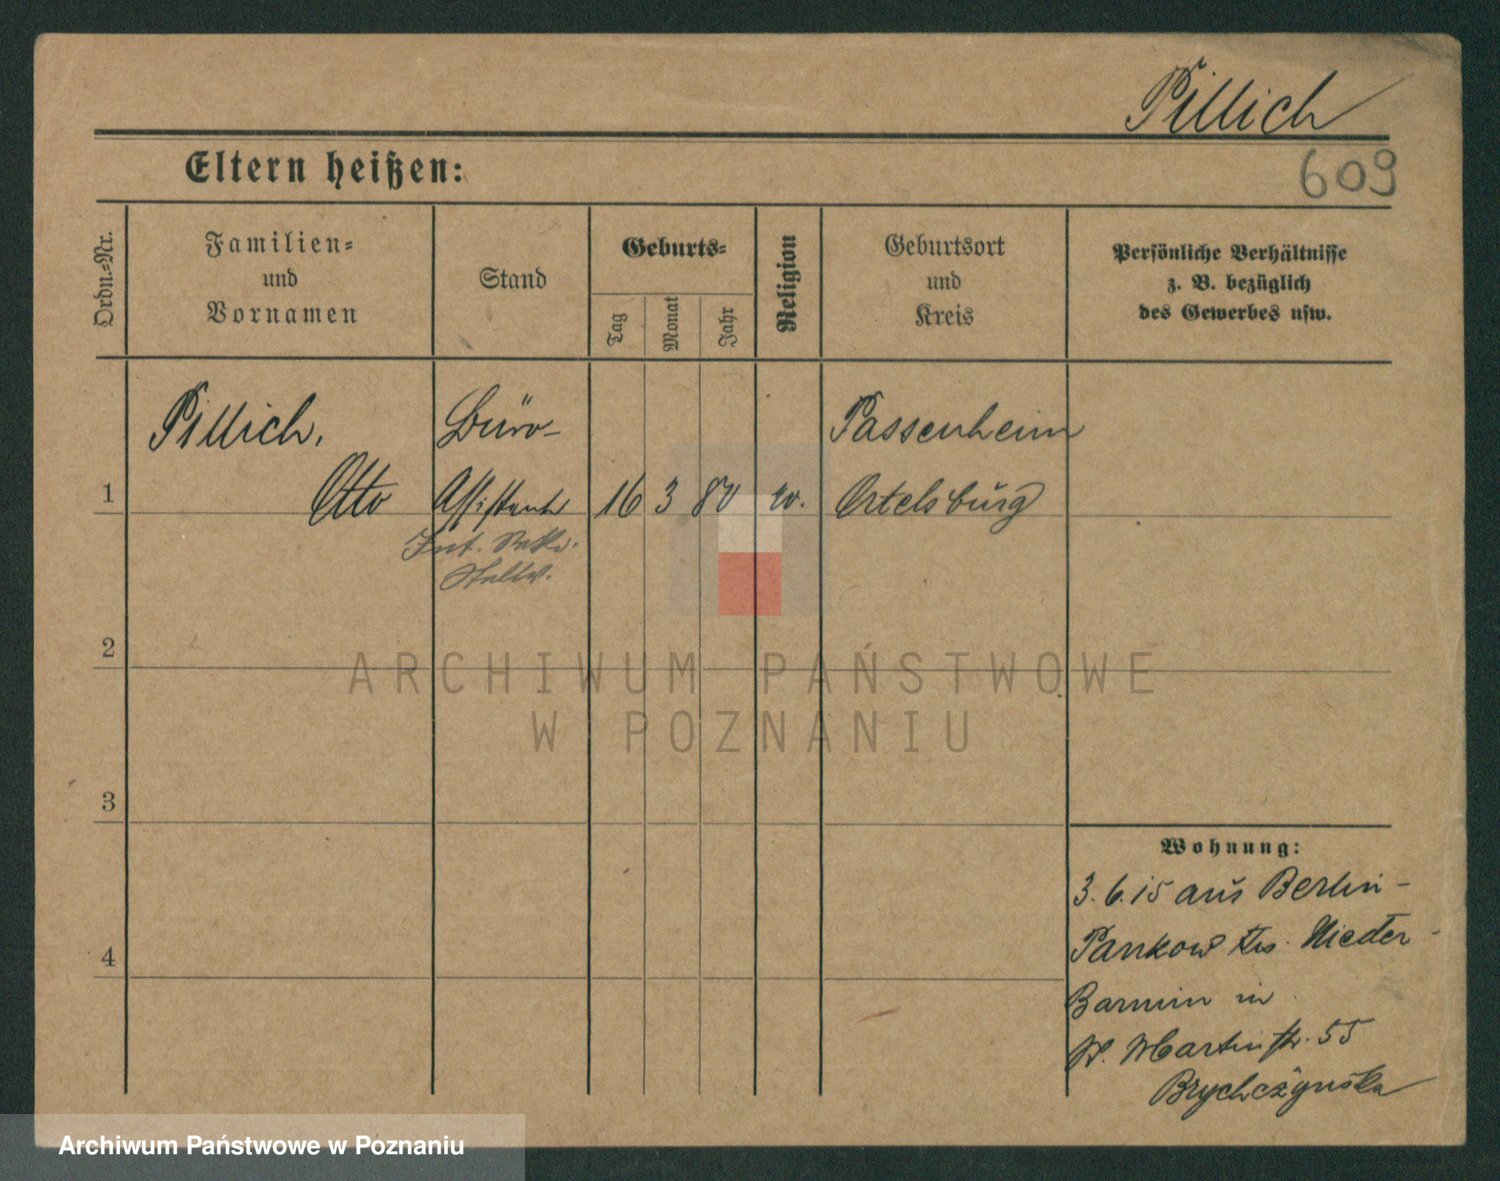 Pillich
609
Eltern heißen:
Ordn.-Nr.
Familien-
und
Vornamen
Stand
Geburts-
Tag
Monat
Jahr
Religion
Geburtsort
und
Kreis
Persönliche Verhältnisse
z. B. bezüglich
des Gewerbes usw.
Pillich,
Otto
Büro-
Assistent
Int. Sekr.
Stellv.
1
16 3 80
ev.
Passenheim
Ortelsburg
2
3
4
ARCHIWUM PAŃSTWOWE
W POZNANIU
Wohnung:
3.6.15 aus Berlin-
Pankow Krs. Nieder-
Barnim in
St. Martinstr. 55
Archiwum Państwowe w Poznaniu